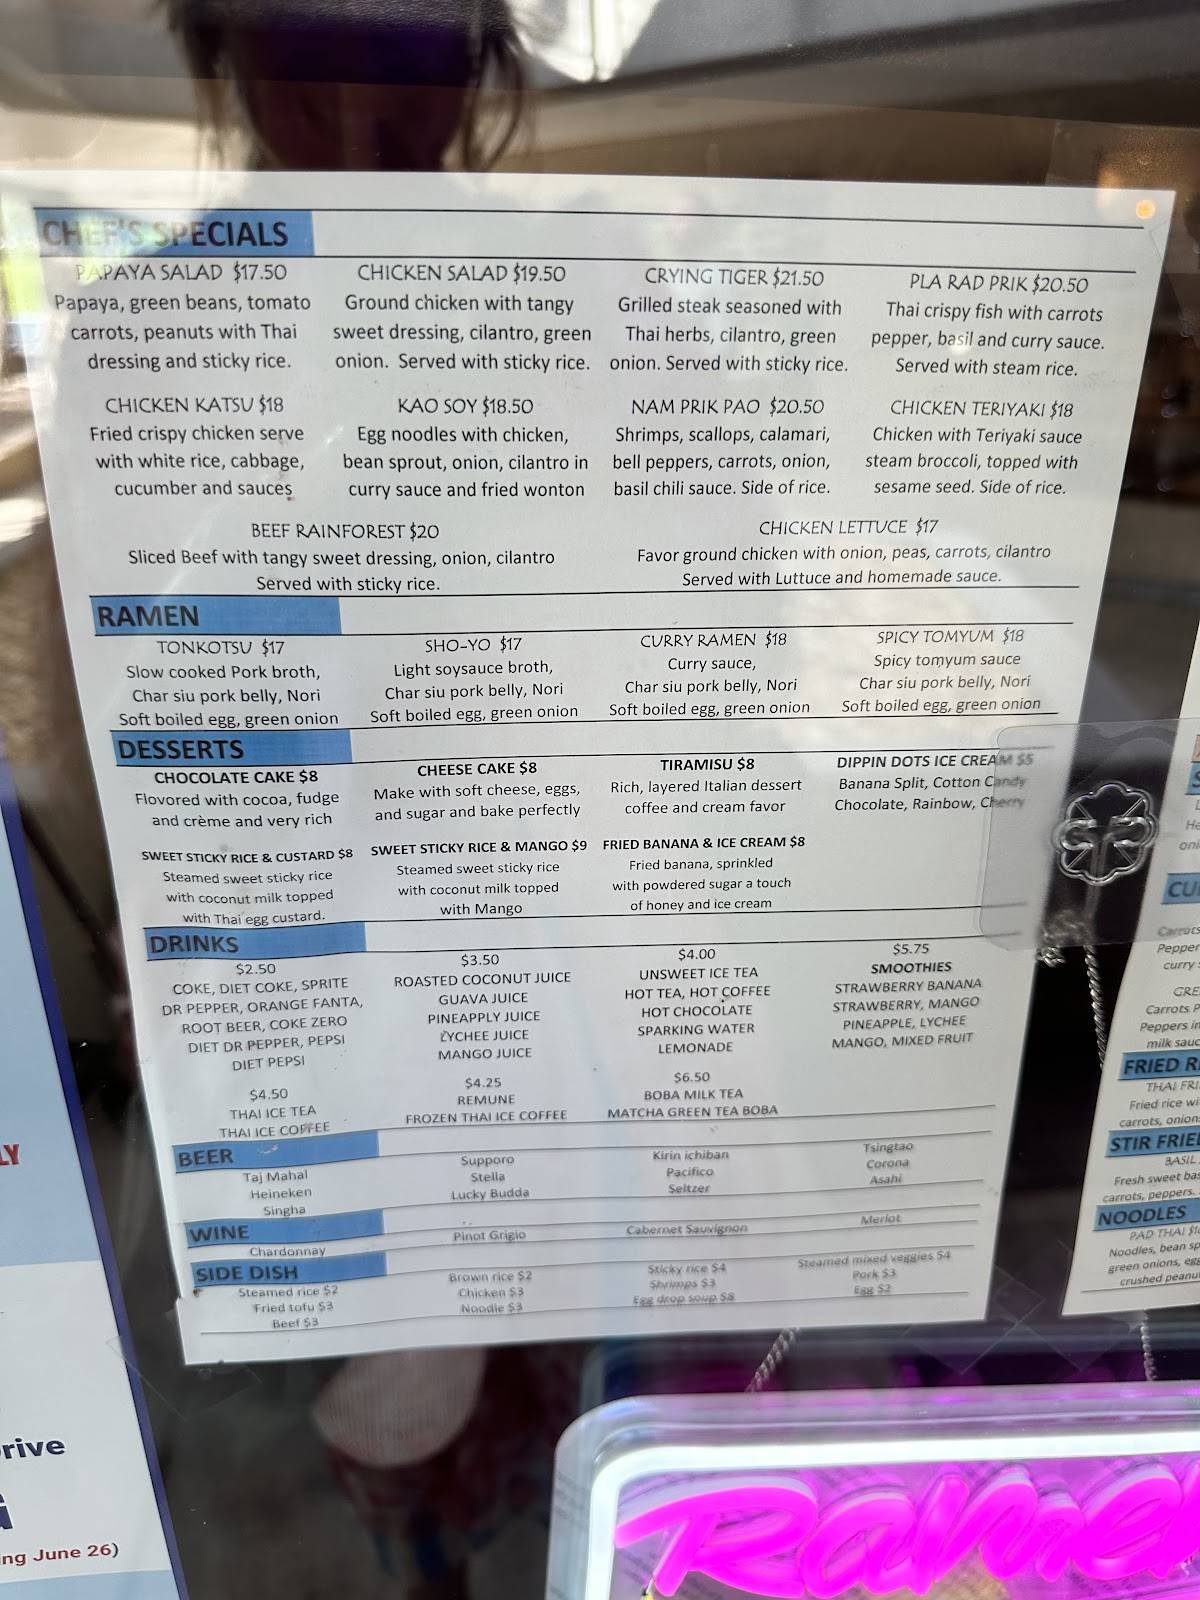 CHEF'S SPECIALS
PAPAYA SALAD $17.50
Papaya, green beans, tomato
carrots, peanuts with Thai
dressing and sticky rice.
CHICKEN SALAD $19.50
Ground chicken with tangy
sweet dressing, cilantro, green
onion. Served with sticky rice.
CRYING TIGER $21.50
Grilled steak seasoned with
Thai herbs, cilantro, green
onion. Served with sticky rice.
PLA RAD PRIK $20.50
Thai crispy fish with carrots
pepper, basil and curry sauce.
Served with steam rice.
CHICKEN KATSU $18
Fried crispy chicken serve
with white rice, cabbage,
cucumber and sauces
KAO SOY $18.50
Egg noodles with chicken,
bean sprout, onion, cilantro in
curry sauce and fried wonton
NAM PRIK PAO $20.50
Shrimps, scallops, calamari,
bell peppers, carrots, onion,
basil chili sauce. Side of rice.
CHICKEN TERIYAKI $18
Chicken with Teriyaki sauce
steam broccoli, topped with
sesame seed. Side of rice.
BEEF RAINFOREST $20
Sliced Beef with tangy sweet dressing, onion, cilantro
Served with sticky rice.
CHICKEN LETTUCE $17
Favor ground chicken with onion, peas, carrots, cilantro
Served with Luttuce and homemade sauce.
RAMEN
TONKOTSU $17
Slow cooked Pork broth,
Char siu pork belly, Nori
Soft boiled egg, green onion
SHO-YO $17
Light soysauce broth,
Char siu pork belly, Nori
Soft boiled egg, green onion
CURRY RAMEN $18
Curry sauce,
Char siu pork belly, Nori
Soft boiled egg, green onion
SPICY TOMYUM $18
Spicy tomyum sauce
Char siu pork belly, Nori
Soft boiled egg, green onion
DESSERTS
CHOCOLATE CAKE $8
Flovored with cocoa, fudge
and crème and very rich
CHEESE CAKE $8
Make with soft cheese, eggs,
and sugar and bake perfectly
TIRAMISU $8
Rich, layered Italian dessert
coffee and cream favor
DIPPIN DOTS ICE CREAM $5
Banana Split, Cotton Candy
Chocolate, Rainbow, Cherry
SWEET STICKY RICE & CUSTARD $8
Steamed sweet sticky rice
with coconut milk topped
with Thai egg custard.
SWEET STICKY RICE & MANGO $9
Steamed sweet sticky rice
with coconut milk topped
with Mango
FRIED BANANA & ICE CREAM $8
Fried banana, sprinkled
with powdered sugar a touch
of honey and ice cream
DRINKS
$2.50
COKE, DIET COKE, SPRITE
DR PEPPER, ORANGE FANTA,
ROOT BEER, COKE ZERO
DIET DR PEPPER, PEPSI
DIET PEPSI
$3.50
ROASTED COCONUT JUICE
GUAVA JUICE
PINEAPPLY JUICE
LYCHEE JUICE
MANGO JUICE
$4.00
UNSWEET ICE TEA
HOT TEA, HOT COFFEE
HOT CHOCOLATE
SPARKING WATER
LEMONADE
$5.75
SMOOTHIES
STRAWBERRY BANANA
STRAWBERRY, MANGO
PINEAPPLE, LYCHEE
MANGO, MIXED FRUIT
$4.50
THAI ICE TEA
THAI ICE COFFEE
$4.25
REMUNE
FROZEN THAI ICE COFFEE
$6.50
BOBA MILK TEA
MATCHA GREEN TEA BOBA
BEER
Taj Mahal
Heineken
Singha
Supporo
Stella
Lucky Budda
Kirin ichiban
Pacifico
Seltzer
Tsingtao
Corona
Asahi
WINE
Chardonnay
Pinot Grigio
Cabernet Sauvignon
Merlot
SIDE DISH
Steamed rice $2
Fried tofu $3
Beef $3
Brown rice $2
Chicken $3
Noodle $3
Sticky rice $4
Shrimps $3
Egg drop soup $8
Steamed mixed veggies $4
Pork $3
Egg $2
CU
Carrots
Pepper
curry
GRE
Carrots P
Peppers in
milk sauc
FRIED R
THAI FRI
Fried rice wi
carrots, onion
STIR FRIE
BASIL
Fresh sweet bas
carrots, peppers.
NOODLES
PAD THAI $1
Noodles, bean sp
green onions, egg
crushed peanu
LY
rive
ng June 26)
Ramen